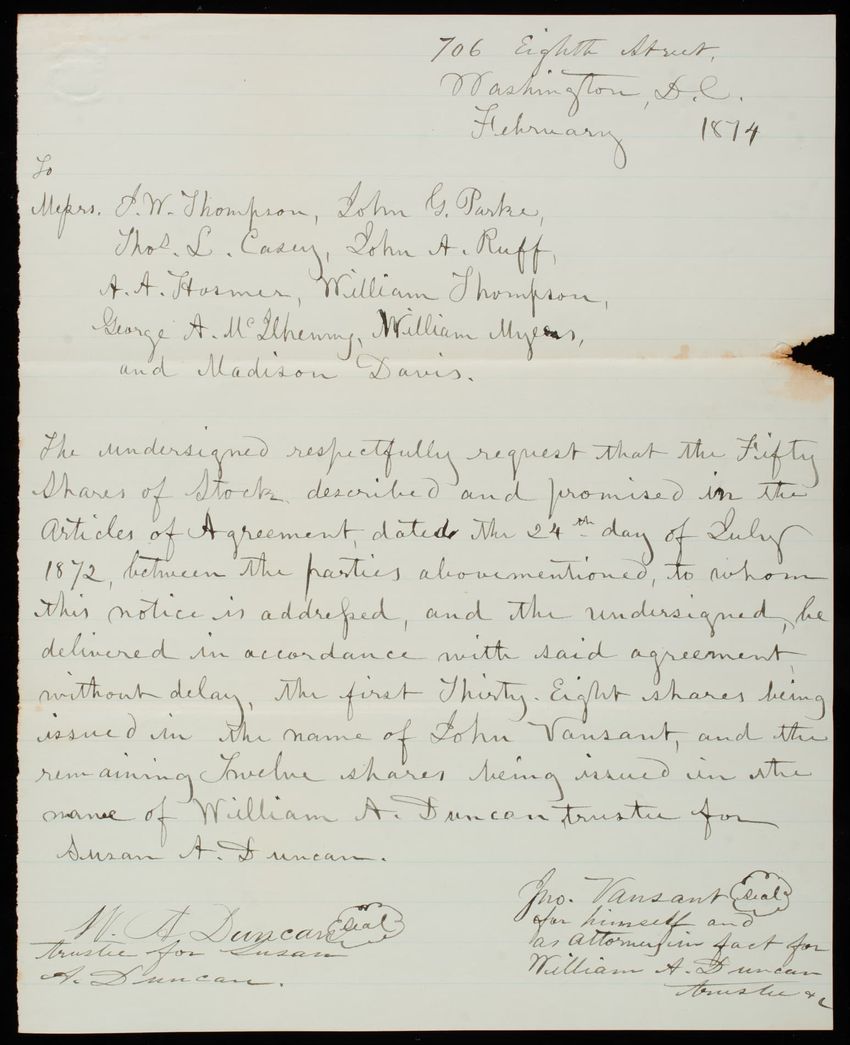 706 Eighth Street,
Washington, D.C.
February 1874
To
Messrs. J. W. Thompson, John G. Parke,
Thos. L. Casey, John A. Ruff,
A. A. Hosmer, William Thompson,
George A. McIlhenny, William Myers,
and Madison Davis.
The undersigned respectfully request that the Fifty
Shares of Stock described and promised in the
Articles of Agreement, dated the 24th day of July
1872, between the parties abovementioned, to whom
this notice is addressed, and the undersigned, be
delivered in accordance with said agreement,
without delay, the first Thirty-Eight shares being
issued in the name of John Vansant, and the
remaining Twelve shares being issued in the
name of William A. Duncan trustee for
Susan A. Duncan.
Jno. Vansant seal
for himself and
as attorney in fact for
William A. Duncan
trustee &c
W. A Duncan seal
trustee for Susan
A. Duncan.